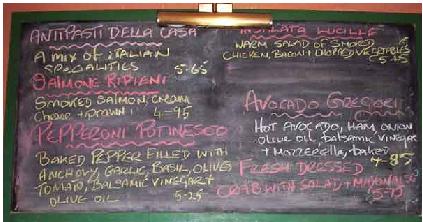 ANTIPASTI DELLA CASA
A MIX OF ITALIAN
SPECIALITIES 5-65
SALMONE RIPIENI
SMOKED SALMON, CREAM
CHEESE + PRAWN 4-95
PEPPERONI POTINESCO
BAKED PEPPER FILLED WITH
ANCHOVY, GARLIC, BASIL, OLIVES
TOMATO, BALSAMIC VINEGAR +
OLIVE OIL 5-25
LUCILLE
WARM SALAD OF SMOKED
CHICKEN, BACON + CHOPPED VEGETABLES
5-45
AVOCADO
HOT AVOCADO, HAM, ONION
OLIVE OIL, BALSAMIC VINEGAR
+ MOZZERELLA, BAKED
4-85
FRESH DRESSED
CRAB WITH SALAD + MAYONAISE
5-75